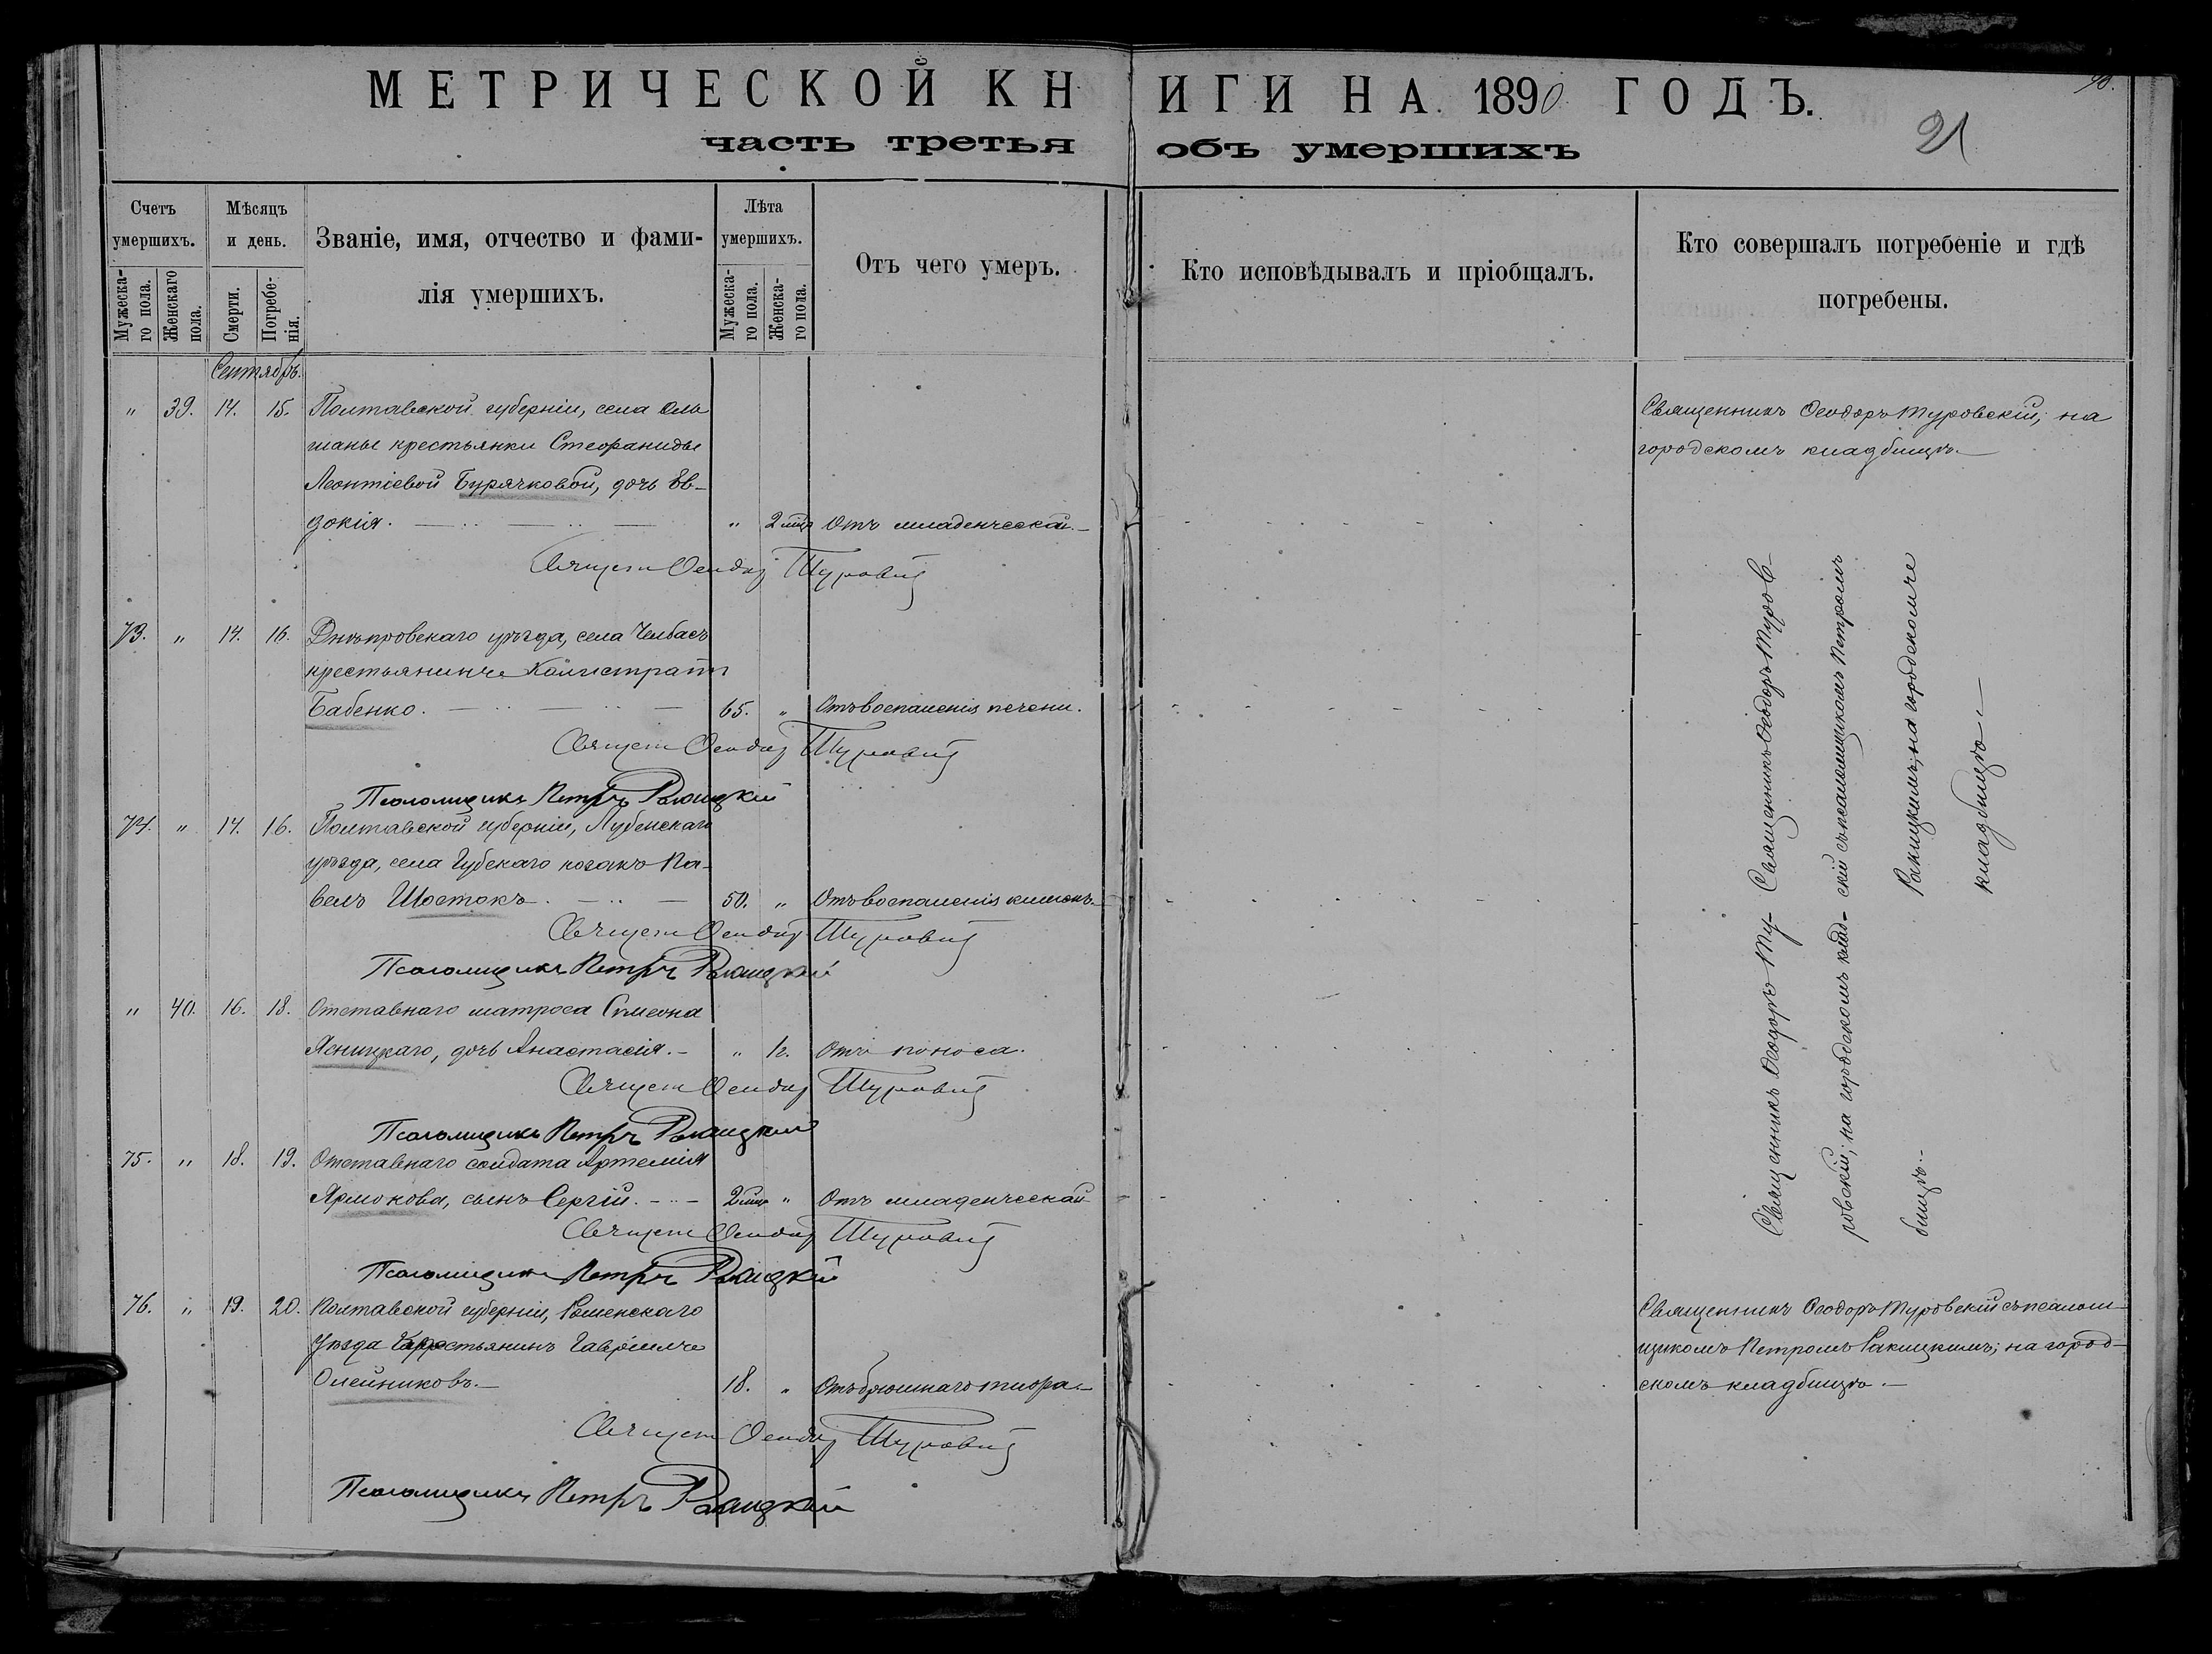 МЕТРИЧЕСКОЙ КНИГИ НА 1890 ГОДЪ.
часть третья объ умершихъ
21
Счетъ умершихъ.
Мужескаго пола.
Женскаго пола.
Мѣсяцъ и день.
Смерти.
Погребенія.
Званіе, имя, отчество и фамилія умершихъ.
Лѣта умершихъ.
Мужескаго пола.
Женскаго пола.
Отъ чего умеръ.
Кто исповѣдывалъ и пріобщалъ.
Кто совершалъ погребеніе и гдѣ
погребены.
Сентябрь.
" 39. 14. 15. Полтавской губерніи, села Оль
шанье крестьянки Стефаниды
Леонтіевой Бурячковой, дочь Ев-
докія. " 2 мца Отъ младенческой.
Священникъ Ѳеодоръ Туровскій; на
городскомъ кладбищѣ.
Священ Ѳеодор Туровскій
73. " 14. 16. Днѣпровскаго уѣзда, села Челбасъ
крестьянинъ Калистратъ
Бабенко. 65. " Отъ воспаленія печени.
Священ Ѳеодор Туровскій
Псаломщикъ Петръ Ракицкій
74. " 14. 16. Полтавской губерніи, Лубенскаго
уѣзда, села Губскаго козакъ Па-
велъ Шостокъ. 50. " Отъ воспаленія кишокъ.
Священ Ѳеодор Туровскій
Псаломщикъ Петръ Ракицкій
Священникъ Ѳеодоръ Туров-
скій съ псаломщикомъ Петромъ
Ракицкимъ; на городскомъ
кладбищѣ.
" 40. 16. 18. Отставнаго матроса Симеона
Ясницкаго, дочь Анастасія. " 1г. Отъ поноса.
Священ Ѳеодор Туровскій
Псаломщикъ Петръ Ракицкій
75. " 18. 19. Отставнаго солдата Артемія
Ярмокова, сынъ Сергій. 2 мца " Отъ младенческой
Священ Ѳеодор Туровскій
Псаломщикъ Петръ Ракицкій
Священникъ Ѳеодоръ Ту-
ровскій; на городскомъ клад-
бищѣ.
76. " 19. 20. Полтавской губерніи, Роменскаго
Уѣзда крестьянинъ Гавріилъ
Олейниковъ. 18. " Отъ брюшнаго тифа.
Священникъ Ѳеодоръ Туровскій съ псалом-
щикомъ Петромъ Ракицкимъ; на город-
скомъ кладбищѣ.
Священ Ѳеодор Туровскій
Псаломщикъ Петръ Ракицкій